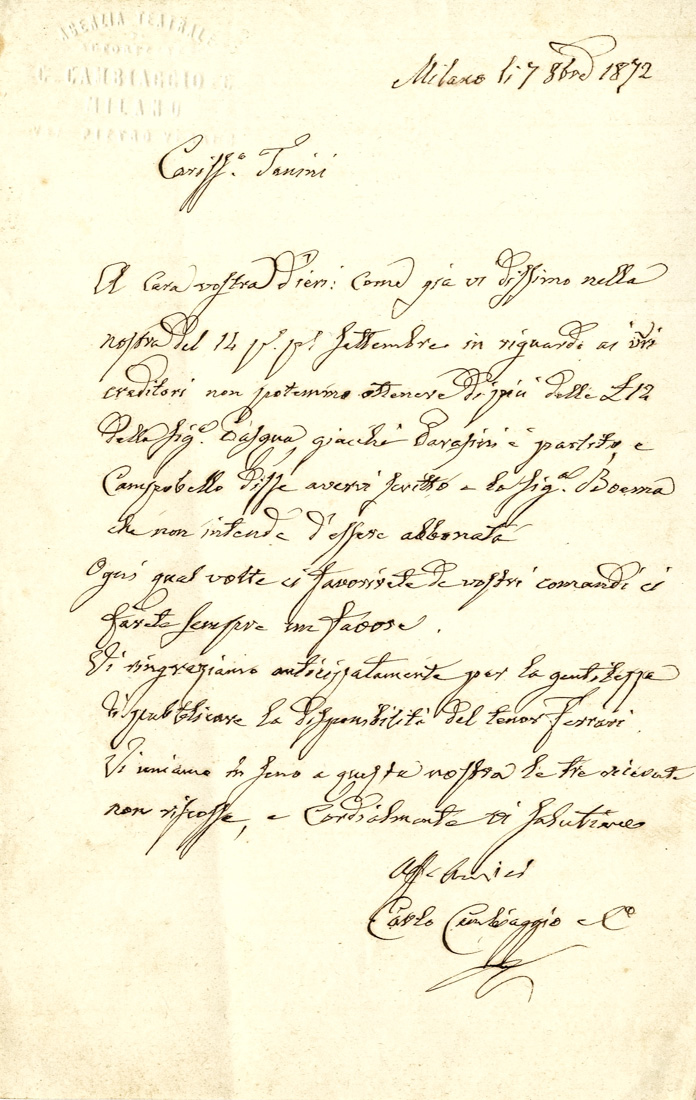 AGENZIA TEATRALE
C. CAMBIAGGIO E C.
MILANO
Milano li 7 8bre 1872
Cariss.º Fanini
A cara vostra d'ieri: come già vi dissimo nella
nostra del 14 p.º p.º Settembre in riguardo ai vri
creditori non potemmo ottenere di più delle £12
della Sig.ª Pasqua, giacchè Parasini è partito, e
Campobello disse avervi scritto e la Sig.ª Boema
che non intende d'essere abbonata
Ogni qual volta ci favorirete de vostri comandi ci
farete sempre un favore.
Vi ringraziamo anticipatamente per la gentilezza
di pubblicare la disponibilità del tenor Ferrari.
Vi uniamo in seno a questa nostra le tre ricevute
non riscosse, e cordialmente vi salutiamo
Aff. Amici
Carlo Cambiaggio e C.º